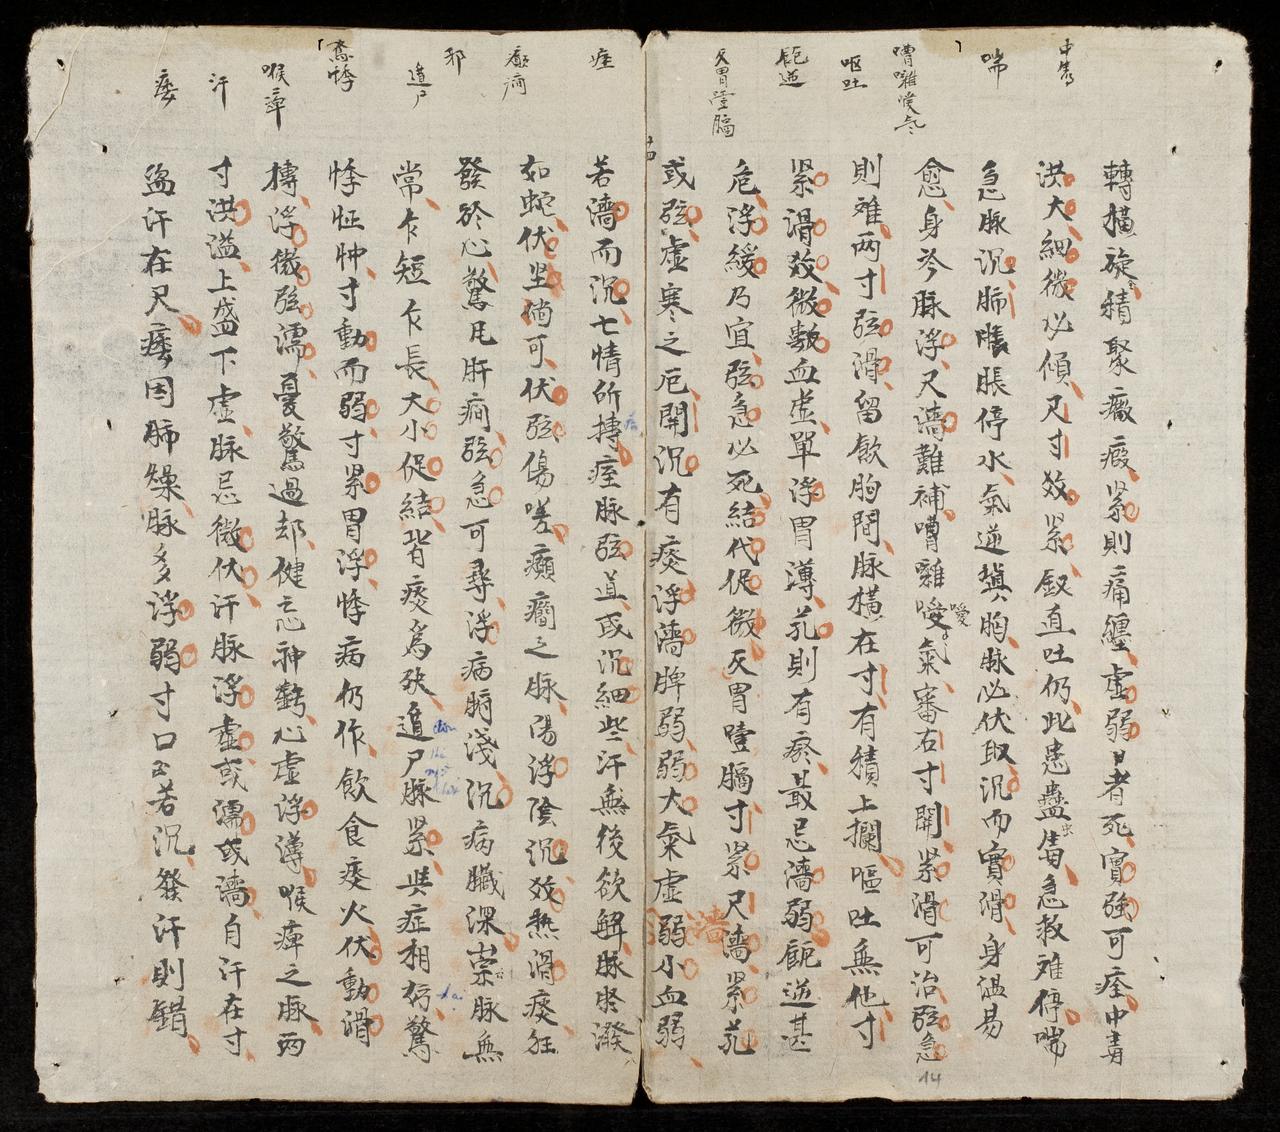 中毒
喘
嘈雜噯气
呕吐
飜逆
反胃噎膈
痓
癲癇
邪
遁尸
驚悸
喉痺
汗
痿
轉橫旋積聚癥瘕紧則痛纏虛弱日者死實強可痊中毒
洪大細微必傾尺寸数紧釵直吐仍此患蠱毒急救难停喘
急脉沉肺脹脹停水氣逆填胸脉必伏取沉而實滑身温易
愈身冷脉浮尺濇難補嘈雜噯氣審右寸関紧滑可治弦急
則难两寸弦滑留飲胸間脉橫在寸有積上攔嘔吐無他寸
紧滑数微数血虛單浮胃薄芤則有瘀最忌濇弱飜逆甚
危浮緩乃宜弦急必死結代促微反胃噎膈寸紧尺濇紧芤
或弦虛寒之厄関沉有痰浮濇脾弱弱大氣虛弱小血弱
若濇而沉七情所摶痓脉弦直或沉細些汗無後欲解脉
如蛇伏坐倘可伏弦傷嗟癲癇之脉陽浮陰沉数熱滑痰狂
發於心驚凡肝癇弦急可尋浮病腑淺沉病臟深崇脉無
常乍短乍長大小促結皆痰為殃遁尸脉紧與症相妨驚
悸怔忡寸動而弱寸累胃浮悸病仍作飲食痰火伏動滑
摶浮微弦濡憂驚過却健忘神虧心虛浮薄喉痺之脉两
寸洪溢上盛下虛脉忌微伏汗脉浮虛或濡或濇自汗在寸
盜汗在尺痿因肺燥脉多浮弱寸口若沉發汗則錯
14